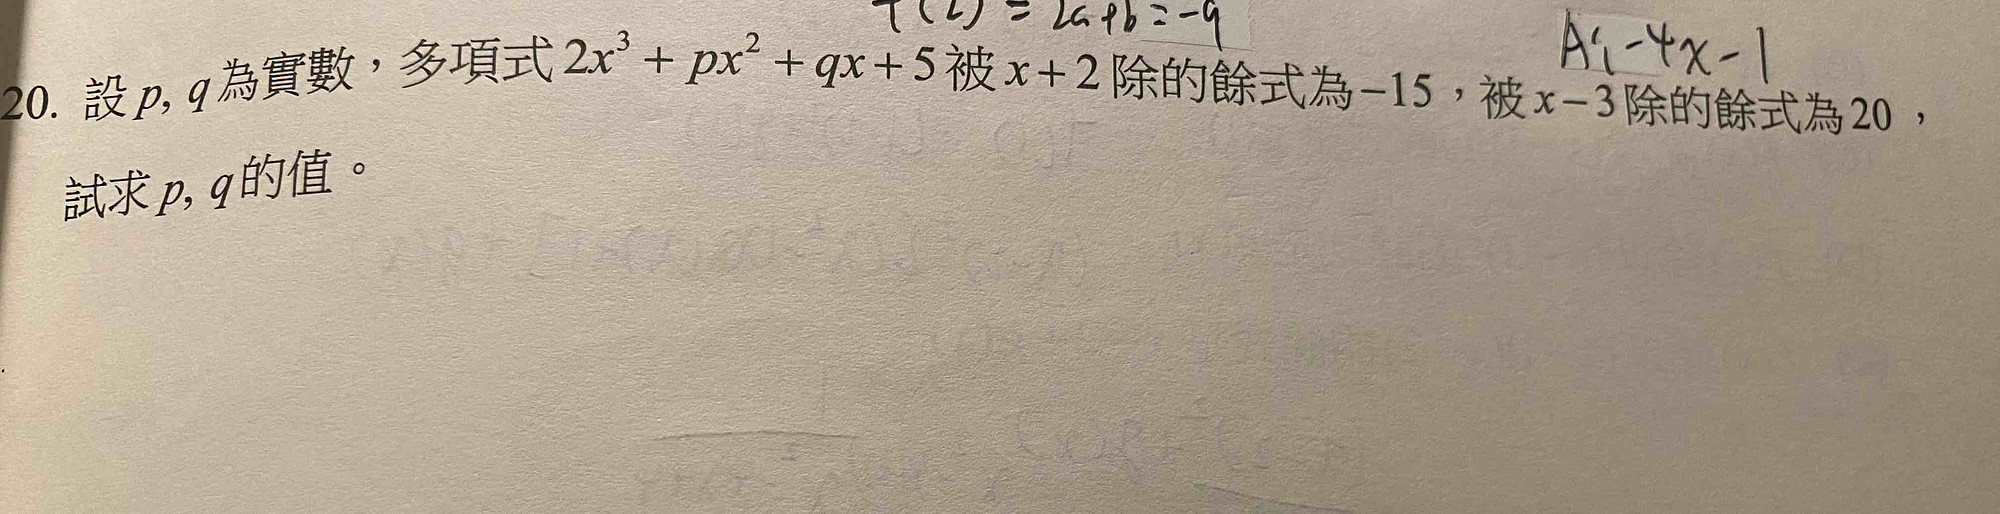 f(2) = 2a+b=-9
A: -4x-1
20. 設 p, q 為實數，多項式 2x³ + px² + qx + 5 被 x + 2 除的餘式為 −15，被 x − 3 除的餘式為 20，
試求 p, q 的值。